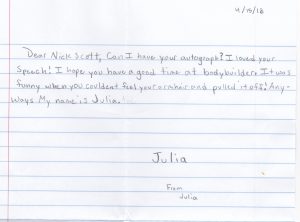 4/15/18
Dear Nick Scott, Can I have your autograph? I loved your
speech! I hope you have a good time at bodybuilders. It was
funny when you couldent feel your armhair and pulled it off! Any-
ways My name is Julia.
Julia
From
Julia